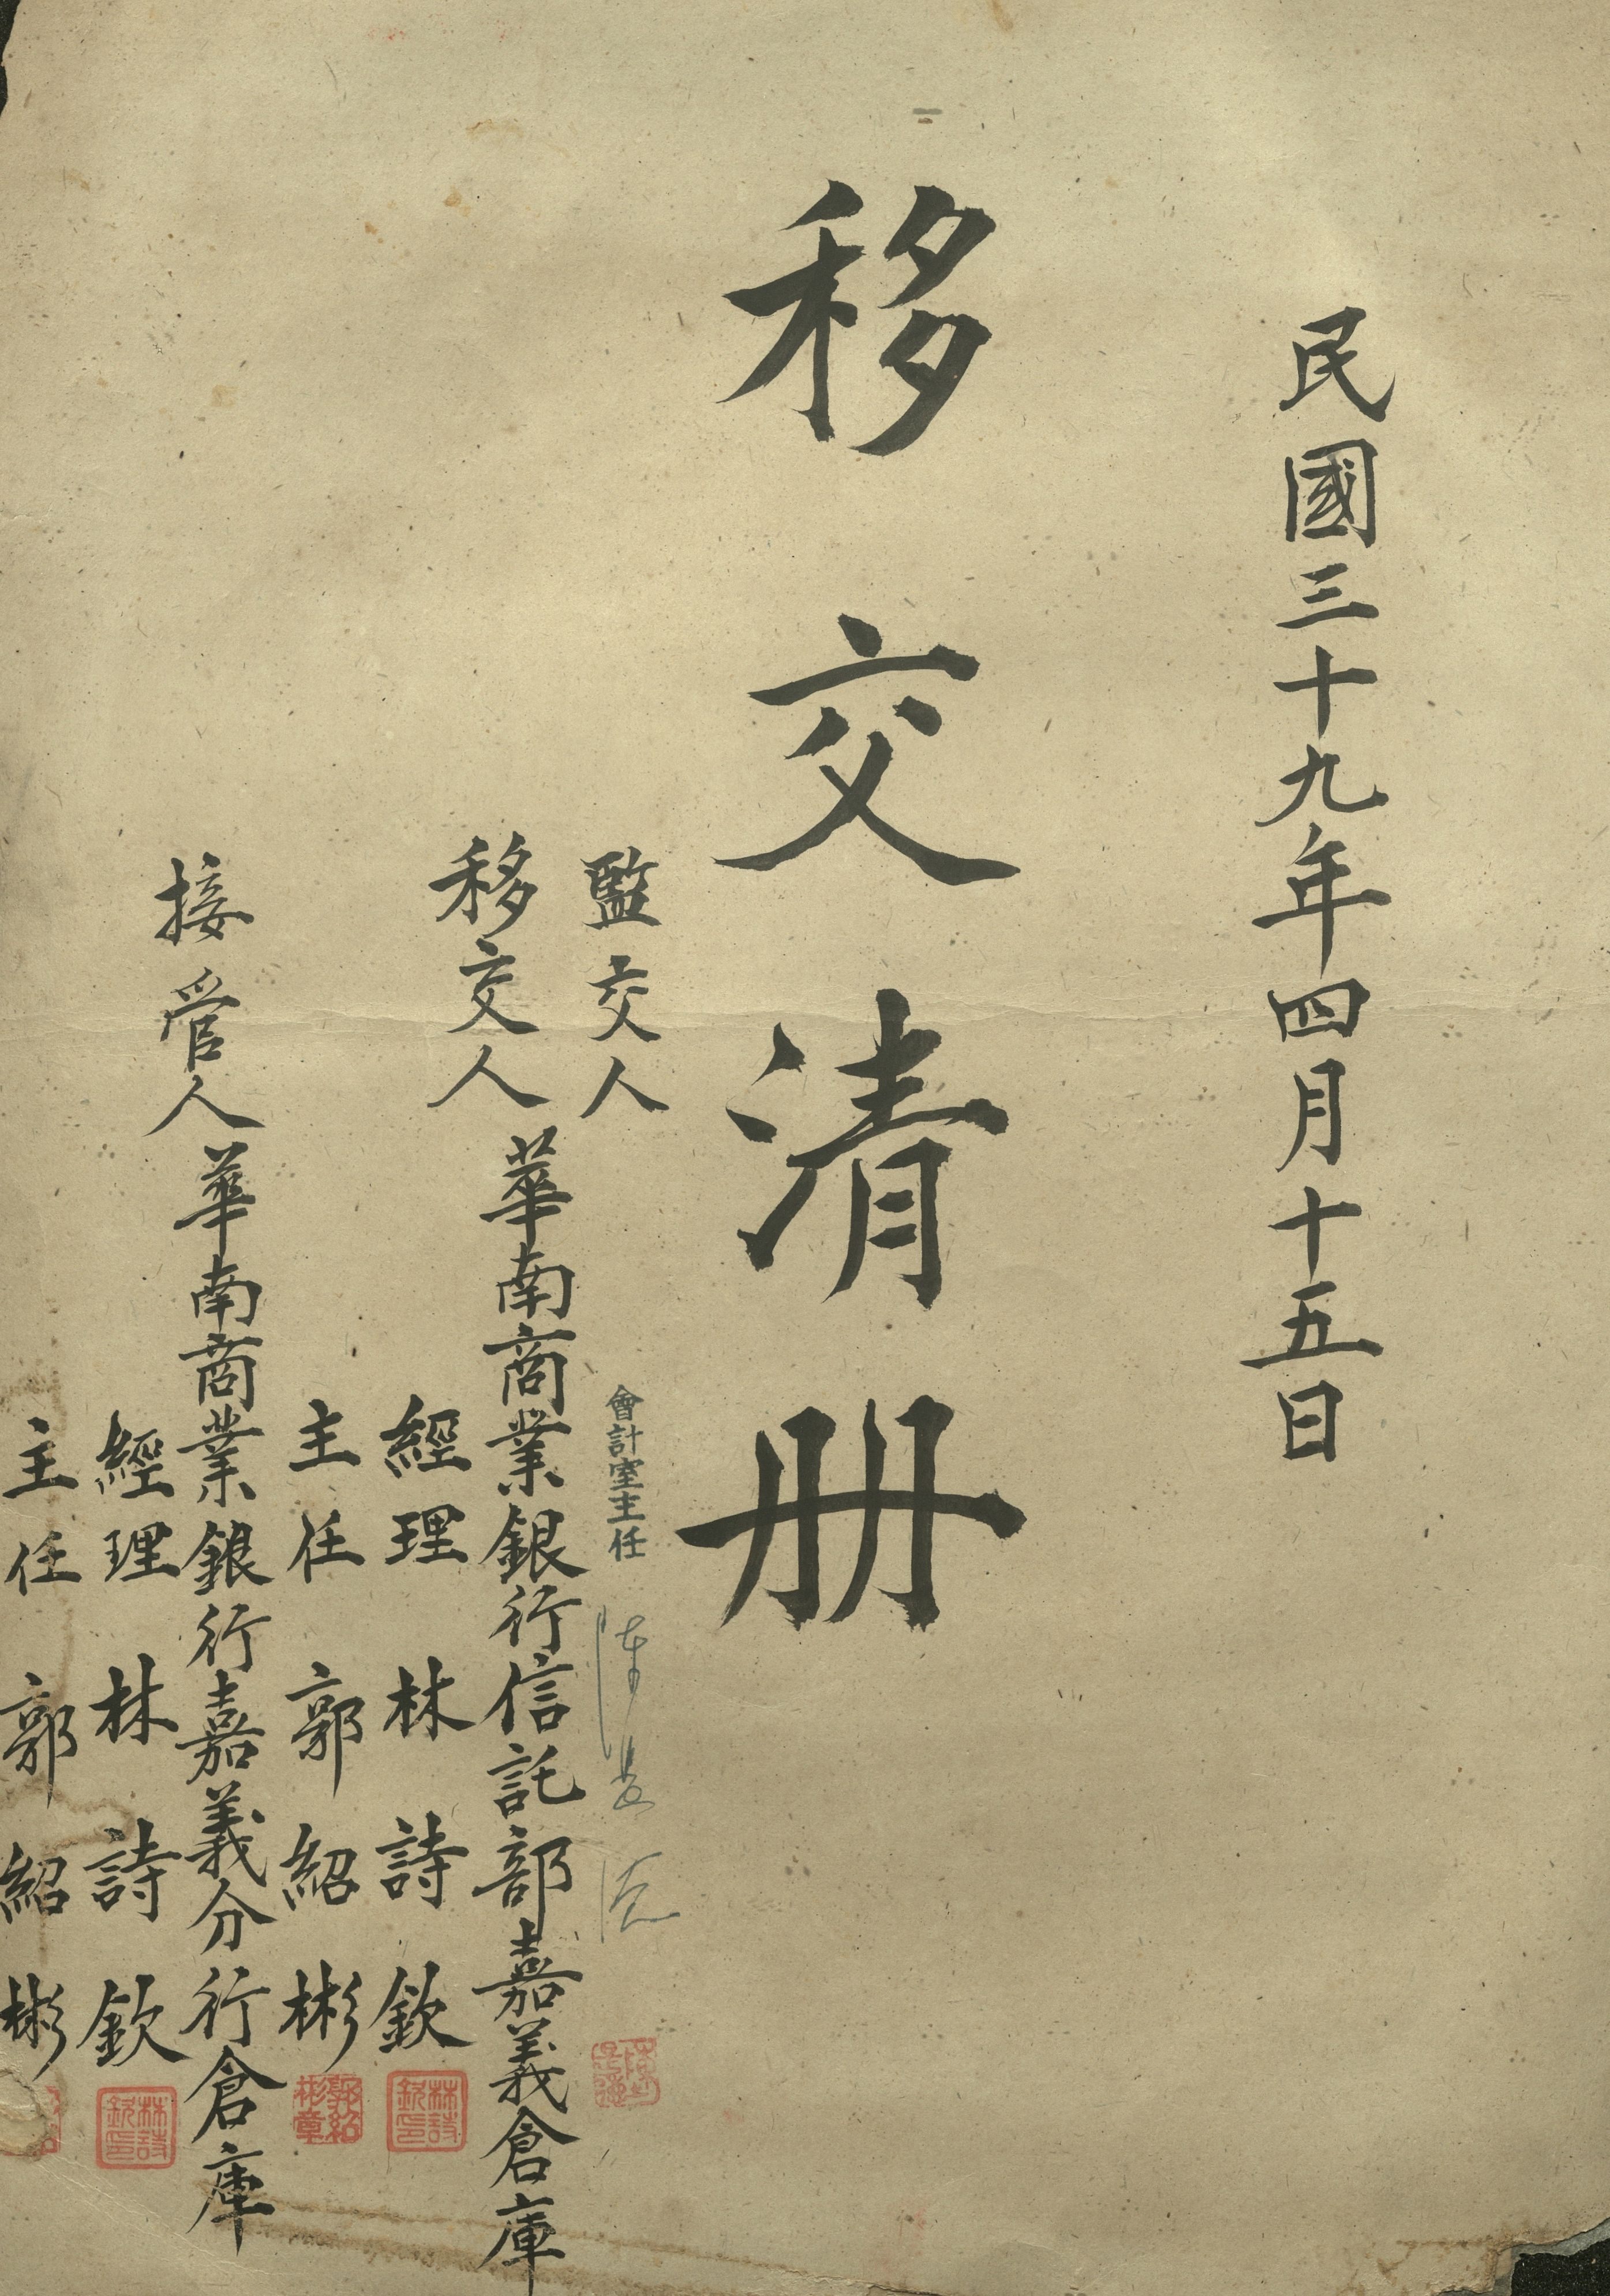 民國三十九年四月十五日
移交清册
監交人
會計室主任 陳
移交人
華南商業銀行信託部嘉義倉庫
經理 林詩欽
林詩欽印
主任 郭紹彬
郭紹彬章
接管人
華南商業銀行嘉義分行倉庫
經理 林詩欽
林詩欽印
主任 郭紹彬